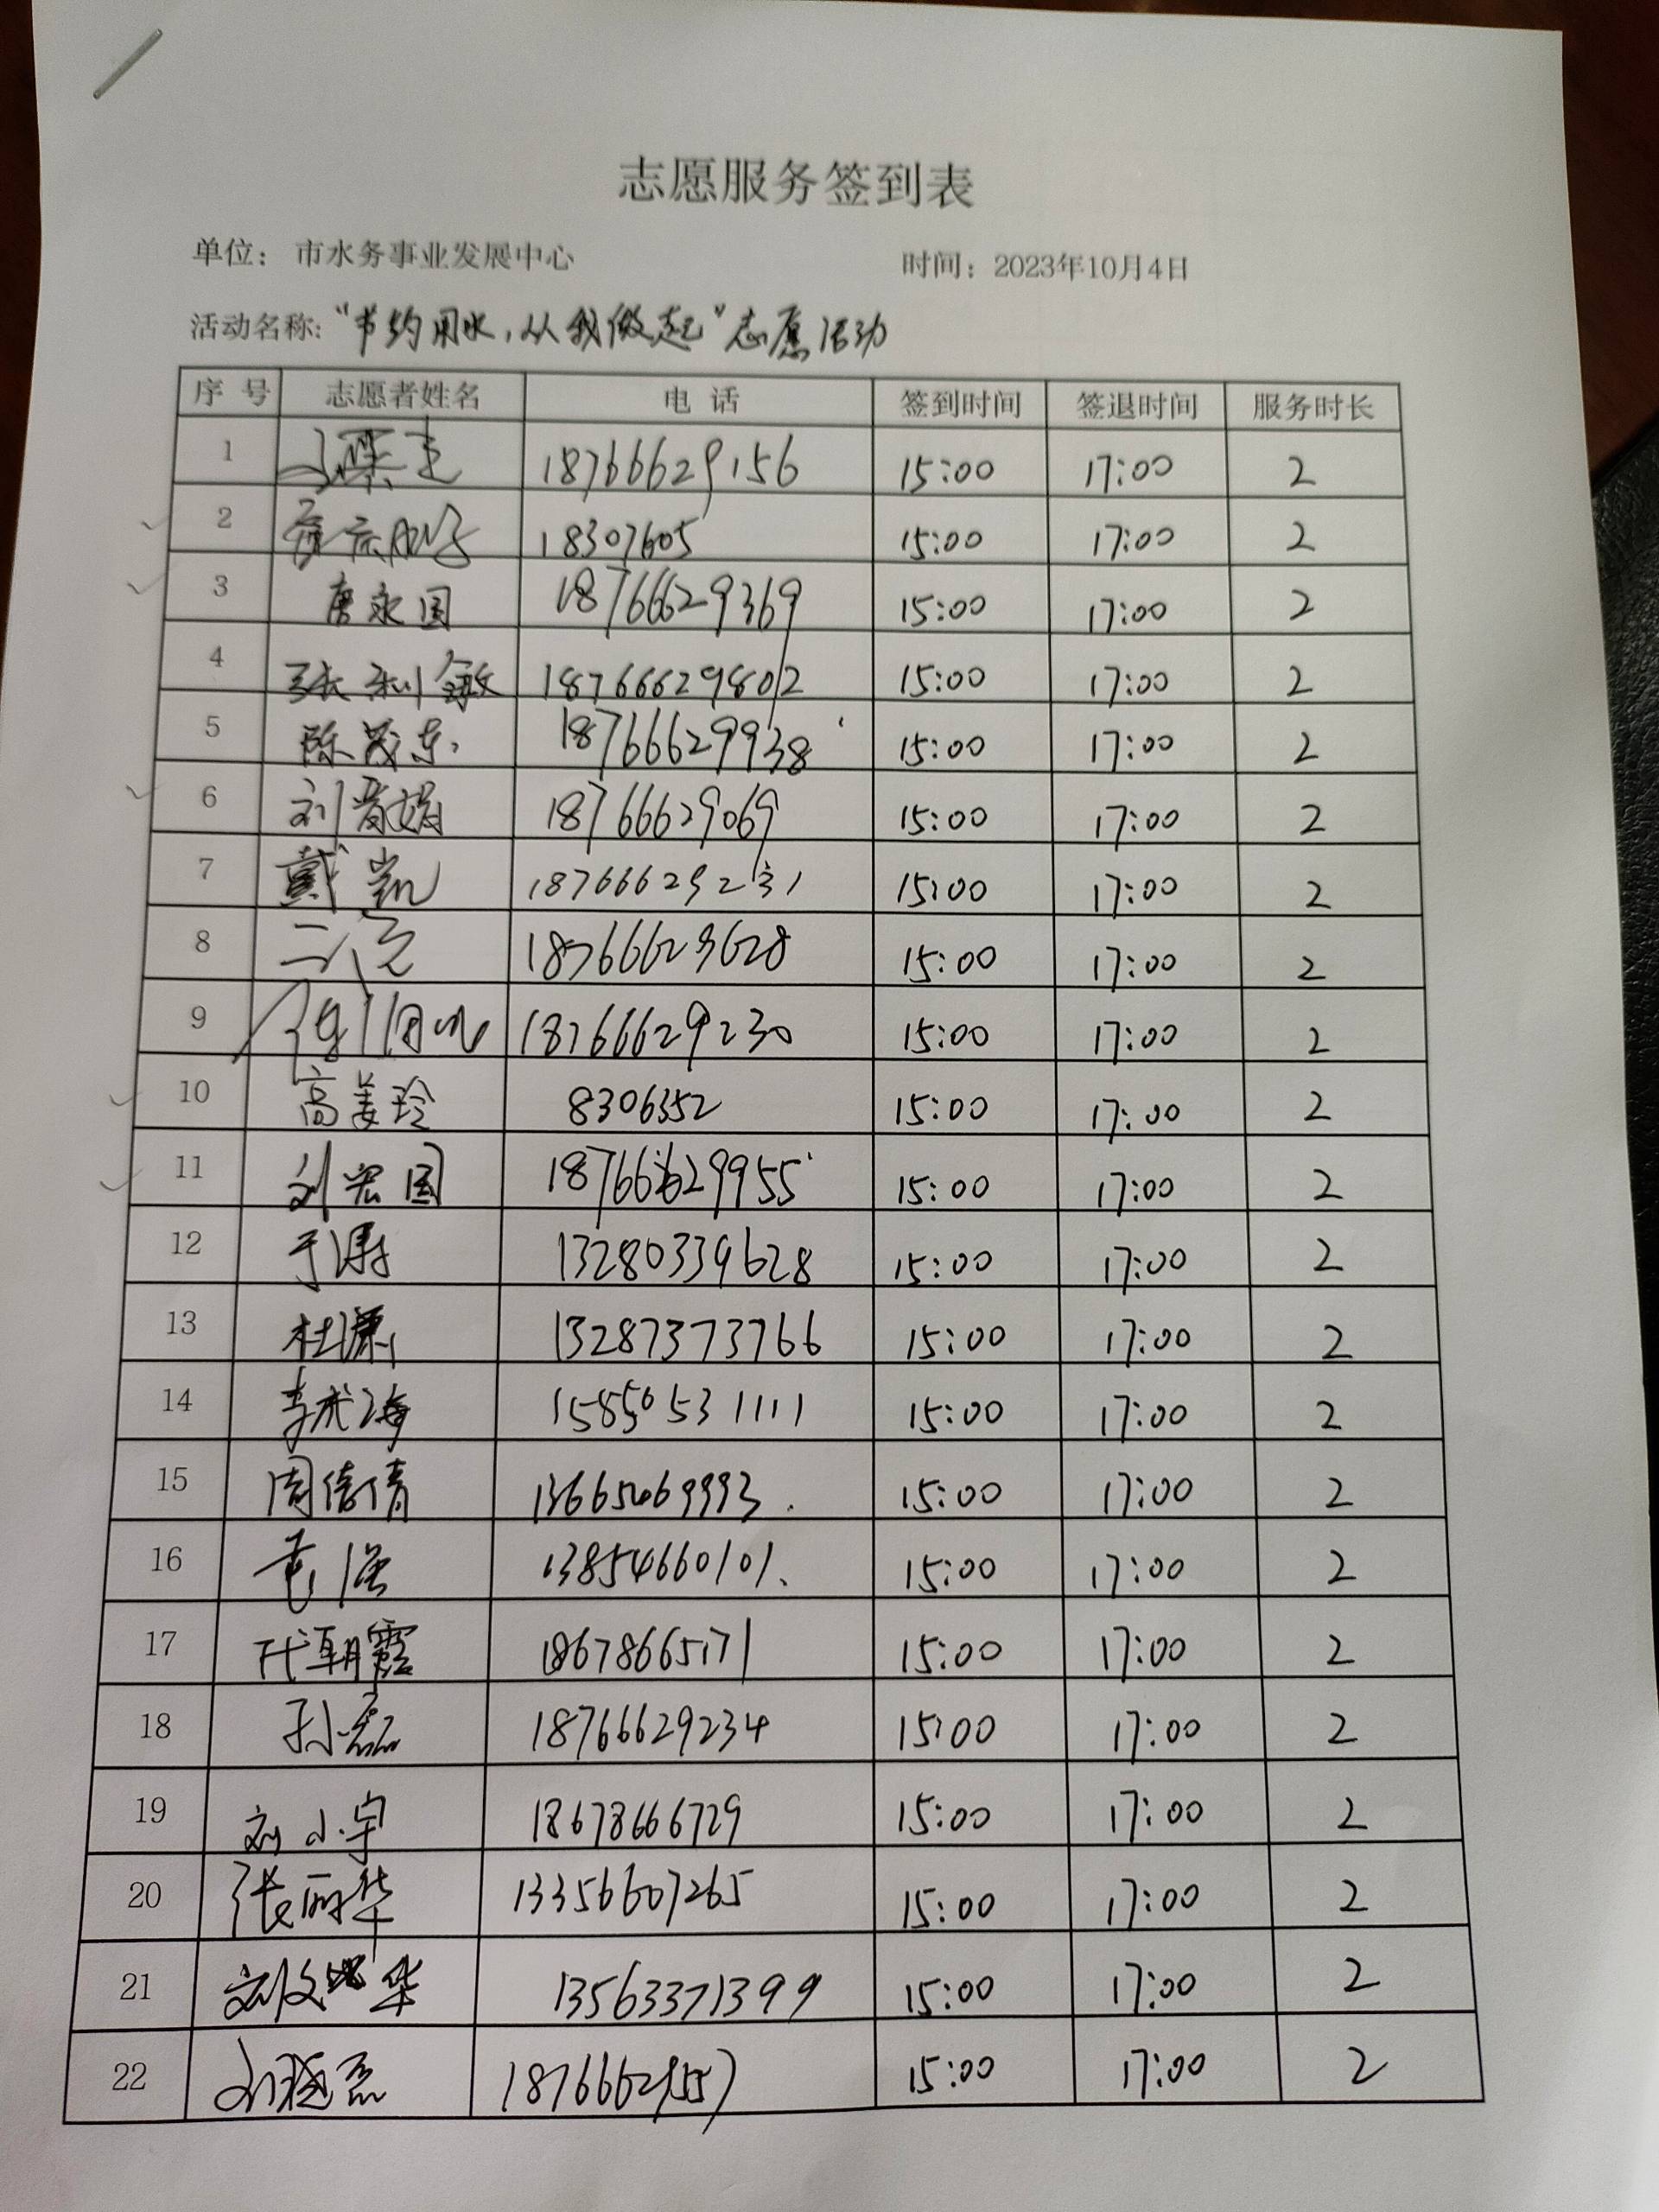 志愿服务签到表
单位： 市水务事业发展中心 时间：2023年10月4日
活动名称:"节约用水,从我做起"志愿活动
序 号 志愿者姓名 电 话 签到时间 签退时间 服务时长
1 18766629156 15:00 17:00 2
2 18307605 15:00 17:00 2
3 唐永国 18766629369 15:00 17:00 2
4 张利敏 18766629802 15:00 17:00 2
5 陈茂东 18766629938 15:00 17:00 2
6 刘 18766629069 15:00 17:00 2
7 戴凯 15:00 17:00 2
8 18766629628 15:00 17:00 2
9 18766629230 15:00 17:00 2
10 高美玲 8306352 15:00 17:00 2
11 刘宏国 18766629955 15:00 17:00 2
12 于 13280339628 15:00 17:00 2
13 杜潇 13287373766 15:00 17:00 2
14 15:00 17:00 2
15 周倩倩 15:00 17:00 2
16 13854660101 15:00 17:00 2
17 代朝霞 18678665171 15:00 17:00 2
18 孙磊 18766629234 15:00 17:00 2
19 刘小宇 18678666729 15:00 17:00 2
20 张丽华 13356607265 15:00 17:00 2
21 刘文华 13563371399 15:00 17:00 2
22 15:00 17:00 2